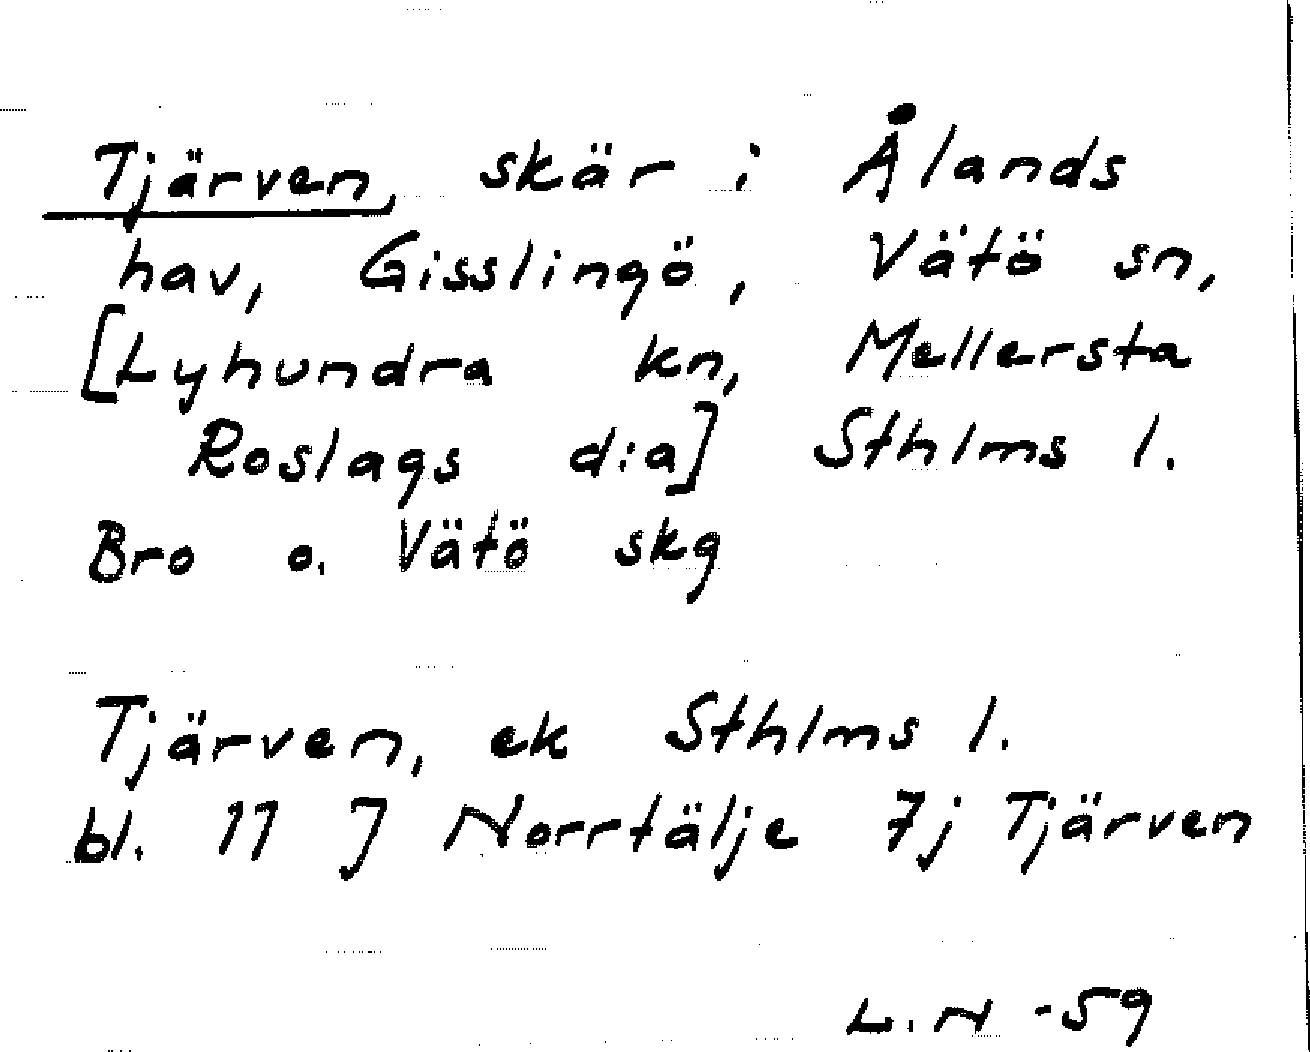 Tjärven, skär i Ålands
hav, Gisslingö, Vätö sn,
[Lyhundra kn, Mellersta
Roslags d:a] Sthlms l.
Bro o. Vätö skg
Tjärven, ek Sthlms l.
bl. 11 J Norrtälje 7j Tjärven
L.N -59